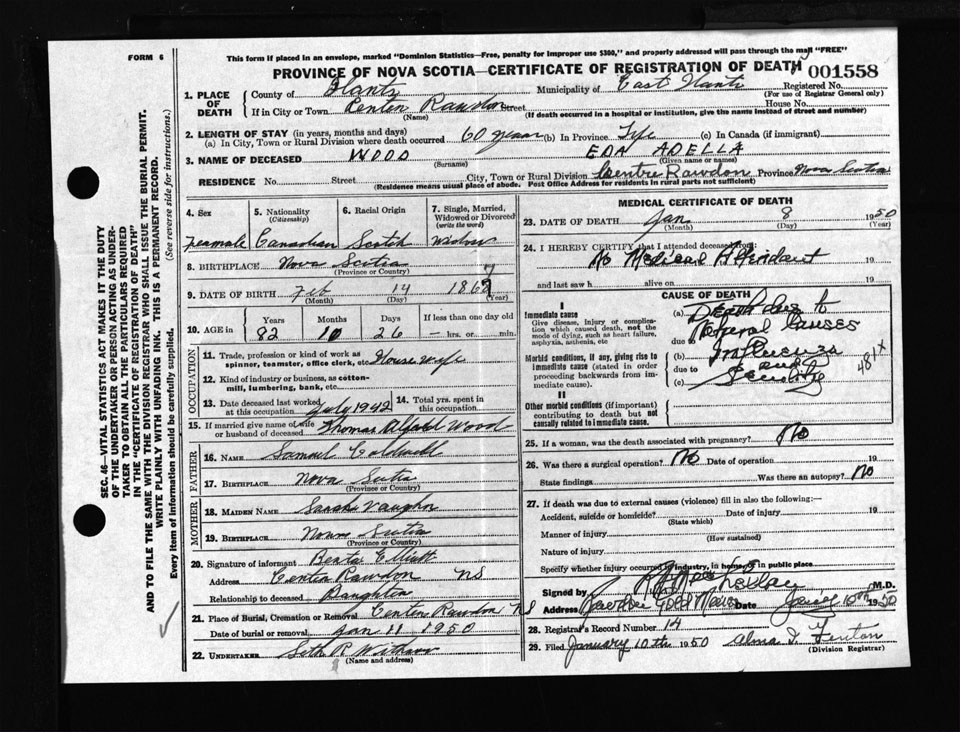 FORM 6
This form if placed in an envelope, marked "Dominion Statistics—Free, penalty for improper use $300," and properly addressed will pass through the mail "FREE"
PROVINCE OF NOVA SCOTIA—CERTIFICATE OF REGISTRATION OF DEATH
001558
1. PLACE OF DEATH
County of Hants Municipality of East Hants Registered No.
(For use of Registrar General only)
If in City or Town Center Rawdon Street House No.
(Name) (If death occurred in a hospital or institution, give the name instead of street and number)
2. LENGTH OF STAY (in years, months and days)
(a) In City, Town or Rural Division where death occurred 60 years (b) In Province Life (c) In Canada (if immigrant)
3. NAME OF DECEASED WOOD EDA ADELLA
(Surname) (Given name or names)
RESIDENCE No. Street City, Town or Rural Division Centre Rawdon Province Nova Scotia
(Residence means usual place of abode. Post Office Address for residents in rural parts not sufficient)
4. Sex
Feamale
5. Nationality
(Citizenship)
Canadian
6. Racial Origin
Scotch
7. Single, Married, Widowed or Divorced
(write the word)
Widow
8. BIRTHPLACE Nova Scotia
(Province or Country)
9. DATE OF BIRTH Feb 14 1867
(Month) (Day) (Year)
10. AGE in
Years Months Days If less than one day old
82 10 26 hrs. or min.
OCCUPATION
11. Trade, profession or kind of work as spinner, teamster, office clerk, etc. House wife
12. Kind of industry or business, as cotton-mill, lumbering, bank, etc.
13. Date deceased last worked at this occupation July 1942
14. Total yrs. spent in this occupation
15. If married give name of wife or husband of deceased Thomas Alfred Wood
FATHER
16. NAME Samuel Coldwell
17. BIRTHPLACE Nova Scotia
(Province or Country)
MOTHER
18. MAIDEN NAME Sarah Vaughn
19. BIRTHPLACE Nova Scotia
(Province or Country)
20. Signature of informant Elliott
Address Center Rawdon NS
Relationship to deceased Daughter
21. Place of Burial, Cremation or Removal Center Rawdon NS
Date of burial or removal Jan 11 1950
22. UNDERTAKER Seth R
(Name and address)
MEDICAL CERTIFICATE OF DEATH
23. DATE OF DEATH Jan 8 1950
(Month) (Day) (Year)
24. I HEREBY CERTIFY that I attended deceased from:
No Medical Attendant 19
last saw h alive on 19
I
Immediate cause
Give disease, injury or complication which caused death, not the mode of dying, such as heart failure, asphyxia, asthenia, etc
Morbid conditions, if any, giving rise to immediate cause (stated in order proceeding backwards from immediate cause).
II
Other morbid conditions (if important) contributing to death but not causally related to immediate cause.
CAUSE OF DEATH
(a) Death due to
due to Natural Causes
(b) Influenza
due to and
(c) Senility
481X
25. If a woman, was the death associated with pregnancy? No
26. Was there a surgical operation? No Date of operation 19
State findings Was there an autopsy? No
27. If death was due to external causes (violence) fill in also the following:—
Accident, suicide or homicide? Date of injury 19
(State which)
Manner of injury
(How sustained)
Nature of injury
Specify whether injury occurred in industry, in home, or in public place
Signed by M.D.
Address Gold Mines Date 10th 1950
28. Registrar's Record Number 14
29. Filed January 10th 1950 Alma I. Fenton
(Division Registrar)
SEC. 46—VITAL STATISTICS ACT MAKES IT THE DUTY
OF THE UNDERTAKER OR PERSON ACTING AS UNDER-
TAKER TO OBTAIN ALL THE PARTICULARS REQUIRED
IN THE "CERTIFICATE OF REGISTRATION OF DEATH"
AND TO FILE THE SAME WITH THE DIVISION REGISTRAR WHO SHALL ISSUE THE BURIAL PERMIT.
WRITE PLAINLY WITH UNFADING INK. THIS IS A PERMANENT RECORD.
Every item of information should be carefully supplied. (See reverse side for instructions.)